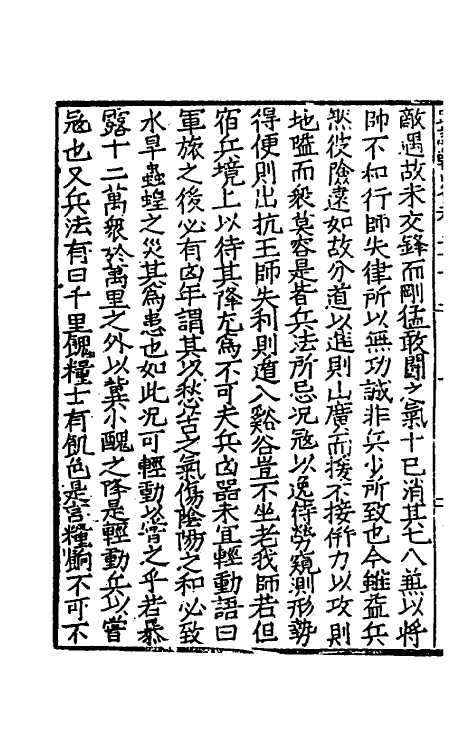 敵遇故未交鋒而剛猛敢鬪之氣十已消其七八兼以將
帥不和行師失律所以無功誠非兵少所致也今雖益兵
然彼險遠如故分道以進則山廣而援不接併力以攻則
地隘而衆莫容是皆兵法所忌况冦以逸待勞窺測形勢
得便則出抗王師失利則遁入谿谷豈不坐老我師若但
宿兵境上以待其降尤為不可夫兵凶器未宜輕動語曰
軍旅之後必有凶年謂其以愁苦之氣傷陰陽之和必致
水旱蟲蝗之災其為患也如此况可輕動以嘗之乎若暴
露十二萬衆於萬里之外以冀小醜之降是輕動兵以嘗
冦也又兵法有曰千里餽糧士有飢色是言糧餉不可不